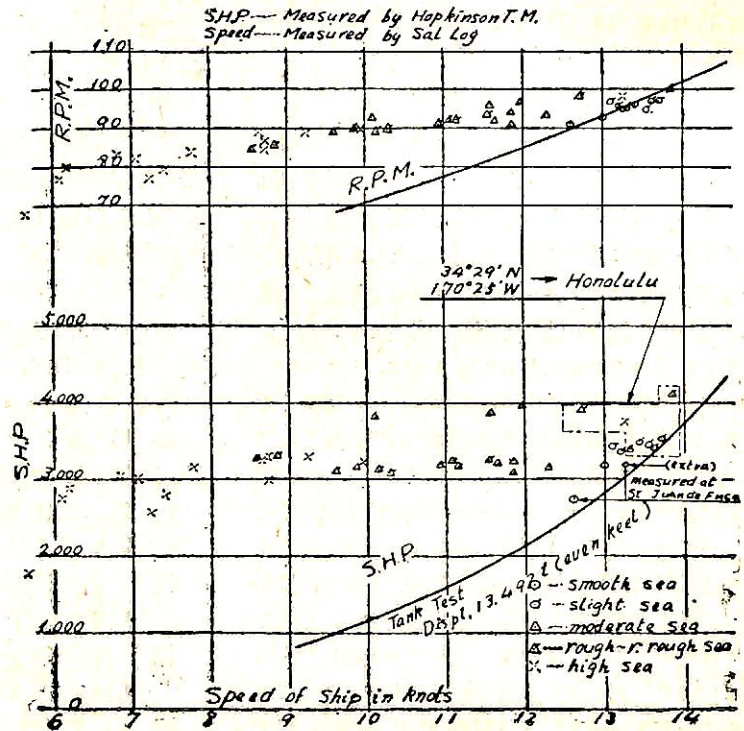 S.H.P.--- Measured by Hopkinson T.M.
Speed---- Measured by Sal Log
110
100
90
80
70
R.P.M.
R.P.M.
34°29' N
170°25' W
→ Honolulu
5.000
4.000
3.000
2.000
1.000
0
S.H.P
(extra)
measured at
St Juan de Fuca
S.H.P.
Tank Test
Disp't. 13.492 t (even keel)
⊙ --- smooth sea
--- slight sea
△ --- moderate sea
--- rough-r. rough sea
--- high sea
Speed of ship in knots
6 7 8 9 10 11 12 13 14